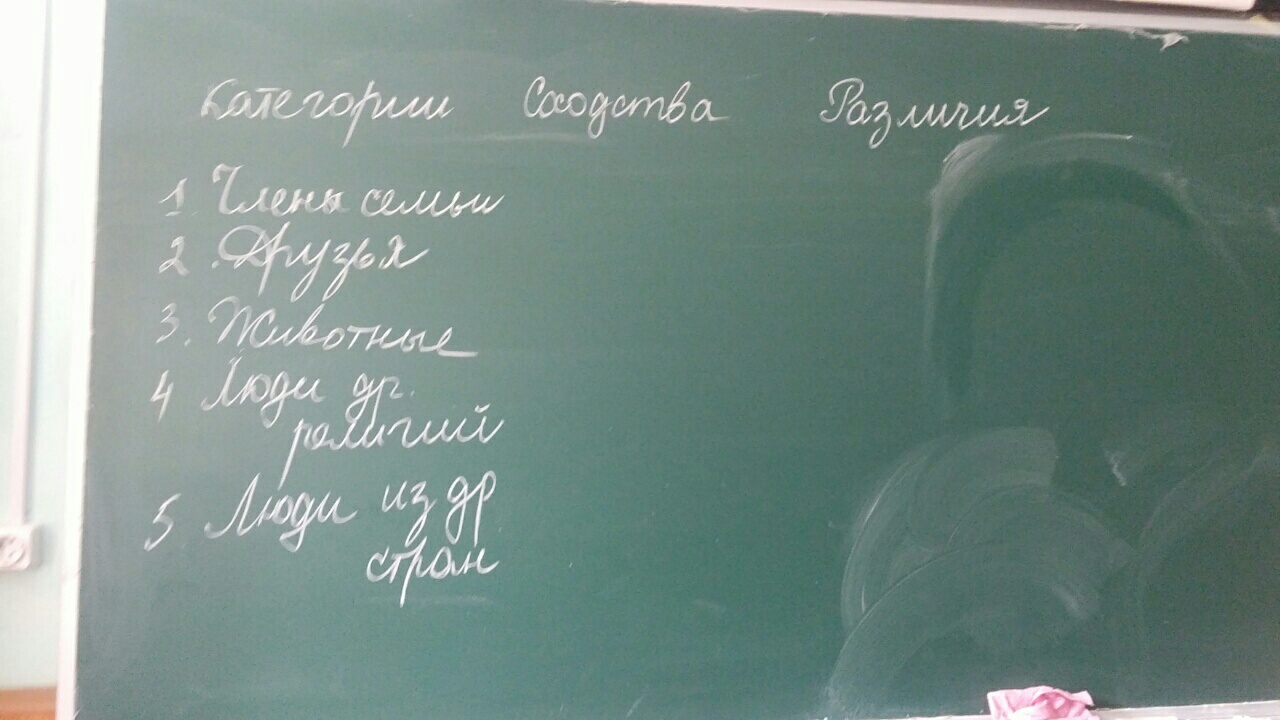 Категории Сходства Различия
1. Члены семьи
2. Друзья
3. Животные
4 Люди др.
религий
5 Люди из др
стран